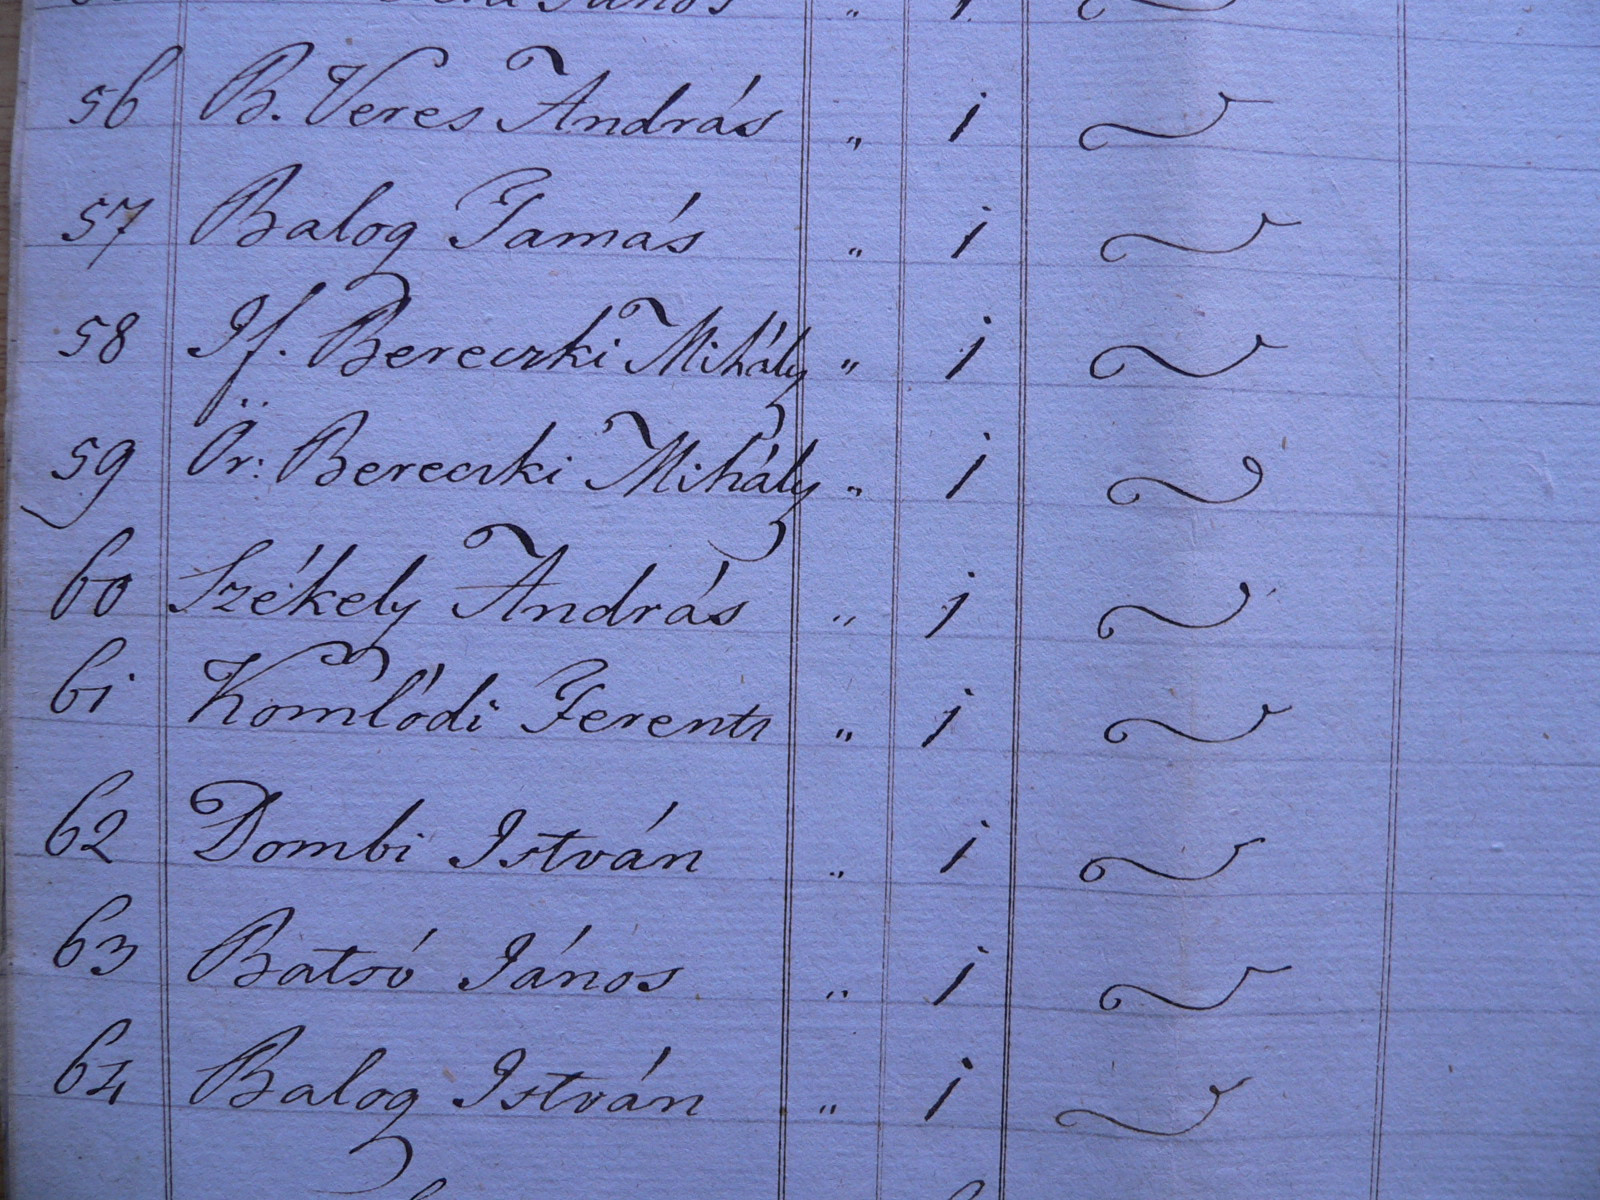 János „ 1
56 B. Veres András „ 1
57 Balog Tamás „ 1
58 If. Bereczki Mihály „ 1
59 Ör: Bereczki Mihály „ 1
60 Székely András „ 1
61 Komlódi Ferents „ 1
62 Dombi István „ 1
63 Batsó János „ 1
64 Balog István „ 1